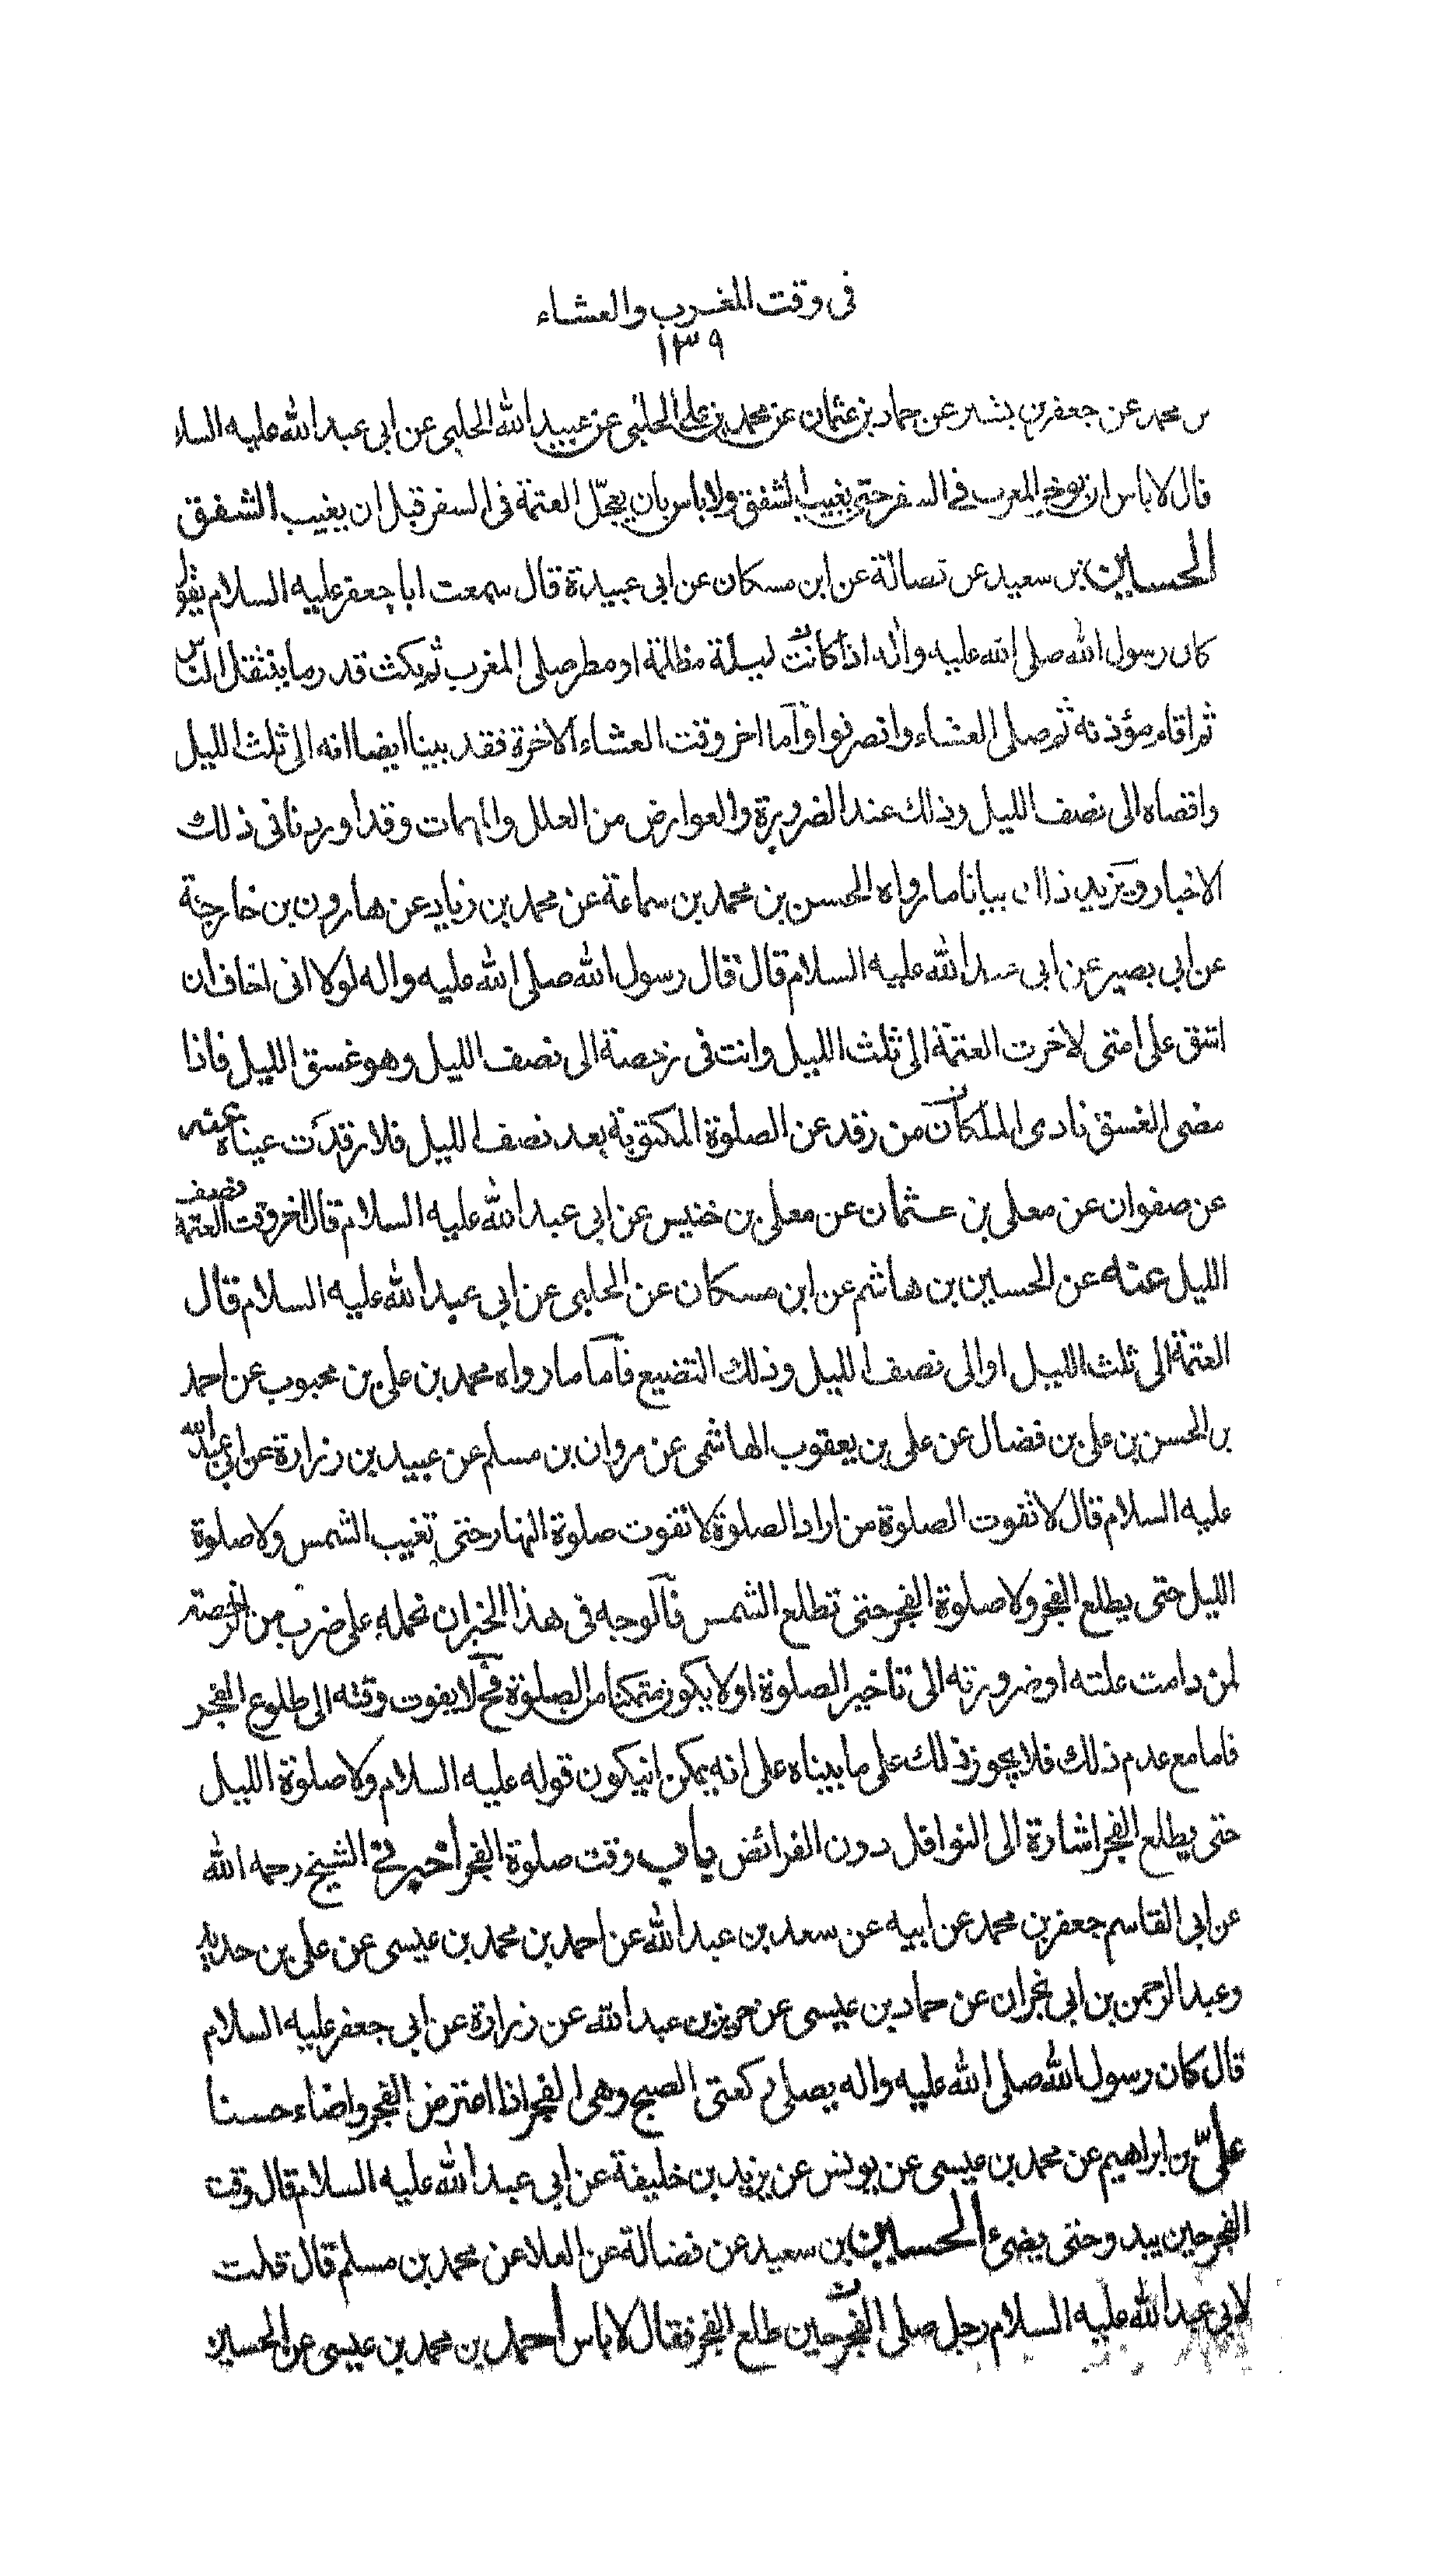 فى وقت المغرب والعشاء
١٣٩
بن محمد عن جعفر بن بشير عن حماد بن عثمان عن محمد بن على الحلبى عن عبيد الله الحلبى عن ابى عبد الله عليه السلا
قال لا باس ان يوخر المغرب فى السفر حتى يغيب الشفق ولا باس بان يعجّل العتمة فى السفر قبل ان يغيب الشفق
الحسين بن سعيد عن فضالة عن ابن مسكان عن ابى عبيدة قال سمعت ابا جعفر عليه السلام يقول
كان رسول الله صلى الله عليه واله اذا كانت ليلة مظلمة او مطر صلى المغرب ثم مكث قدر ما يتنفل الناس
ثم اقام مؤذنه ثم صلى العشاء وانصرفوا واما اخر وقت العشاء الاخرة فقد بينا ايضا انه الى ثلث الليل
واقصاه الى نصف الليل وذلك عند الضرورة والعوارض من العلل والمهمات وقد اوردنا فى ذلك
الاخبار ويزيد ذلك بيانا ما رواه الحسن بن محمد بن سماعة عن محمد بن زياد عن هارون بن خارجة
عن ابى بصير عن ابى عبد الله عليه السلام قال قال رسول الله صلى الله عليه واله لولا انى اخاف ان
اشق على امتى لاخرت العتمة الى ثلث الليل وانت فى رخصة الى نصف الليل وهو غسق الليل فاذا
مضى الغسق نادى الملكان من رقد عن الصلوة المكتوبة بعد نصف الليل فلا رقدت عيناه عنه
عن صفوان عن معلى بن عثمان عن معلى بن خنيس عن ابى عبد الله عليه السلام قال اخر وقت العتمة نصف
الليل عنه عن الحسين بن هاشم عن ابن مسكان عن الحلبى عن ابى عبد الله عليه السلام قال
العتمة الى ثلث الليل او الى نصف الليل وذلك التضيع فاما ما رواه محمد بن على بن محبوب عن احمد
بن الحسن بن على بن فضال عن على بن يعقوب الهاشمى عن مروان بن مسلم عن عبيد بن زرارة عن ابى عبد الله
عليه السلام قال لا تفوت الصلوة من اراد الصلوة لا تفوت صلوة النهار حتى تغيب الشمس ولا صلوة
الليل حتى يطلع الفجر ولا صلوة الفجر حتى تطلع الشمس فالوجه فى هذا الخبر ان نحمله على ضرب من الرخصة
لمن دامت علته او ضرورته الى تاخير الصلوة او لا يكون متمكنا من الصلوة فح لا يفوت وقته الى طلوع الفجر
فاما مع عدم ذلك فلا يجوز ذلك على ما بيناه على انه يمكن انيكون قوله عليه السلام ولا صلوة الليل
حتى يطلع الفجر اشارة الى النوافل دون الفرائض باب وقت صلوة الفجر اخبرنى الشيخ رحمه الله
عن ابى القاسم جعفر بن محمد عن ابيه عن سعد بن عبد الله عن احمد بن محمد بن عيسى عن على بن حديد
وعبد الرحمن بن ابى نجران عن حماد بن عيسى عن حريز بن عبد الله عن زرارة عن ابى جعفر عليه السلام
قال كان رسول الله صلى الله عليه واله يصلى ركعتى الصبح وهى الفجر اذا اعترض الفجر واضاء حسنا
علىّ بن ابراهيم عن محمد بن عيسى عن يونس عن يزيد بن خليفة عن ابى عبد الله عليه السلام قال وقت
الفجر حين يبدو حتى يضئ الحسين بن سعيد عن فضالة عن العلا عن محمد بن مسلم قال قلت
لابى عبد الله عليه السلام رجل صلى الفجر حين طلع الفجر فقال لا باس احمد بن محمد بن عيسى عن الحسين